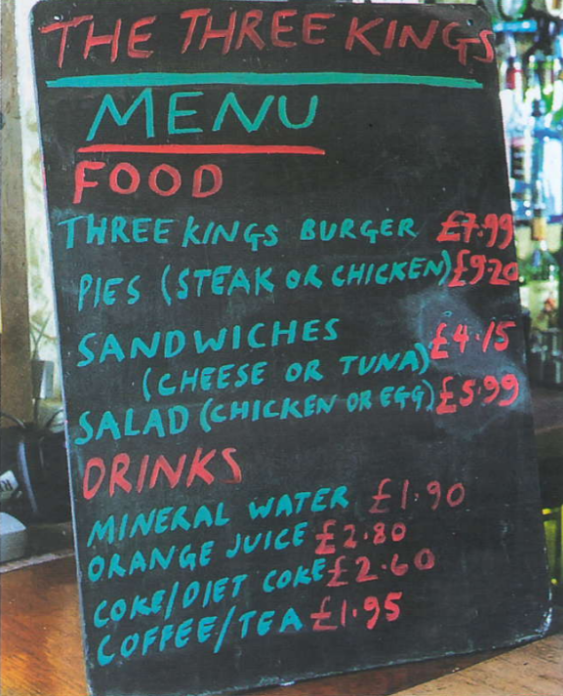 THE THREE KINGS
MENU
FOOD
THREE KINGS BURGER £7.99
PIES (STEAK OR CHICKEN) £9.20
SANDWICHES £4.15
(CHEESE OR TUNA)
SALAD (CHICKEN OR EGG) £5.99
DRINKS
MINERAL WATER £1.90
ORANGE JUICE £2.80
COKE/DIET COKE £2.60
COFFEE/TEA £1.95